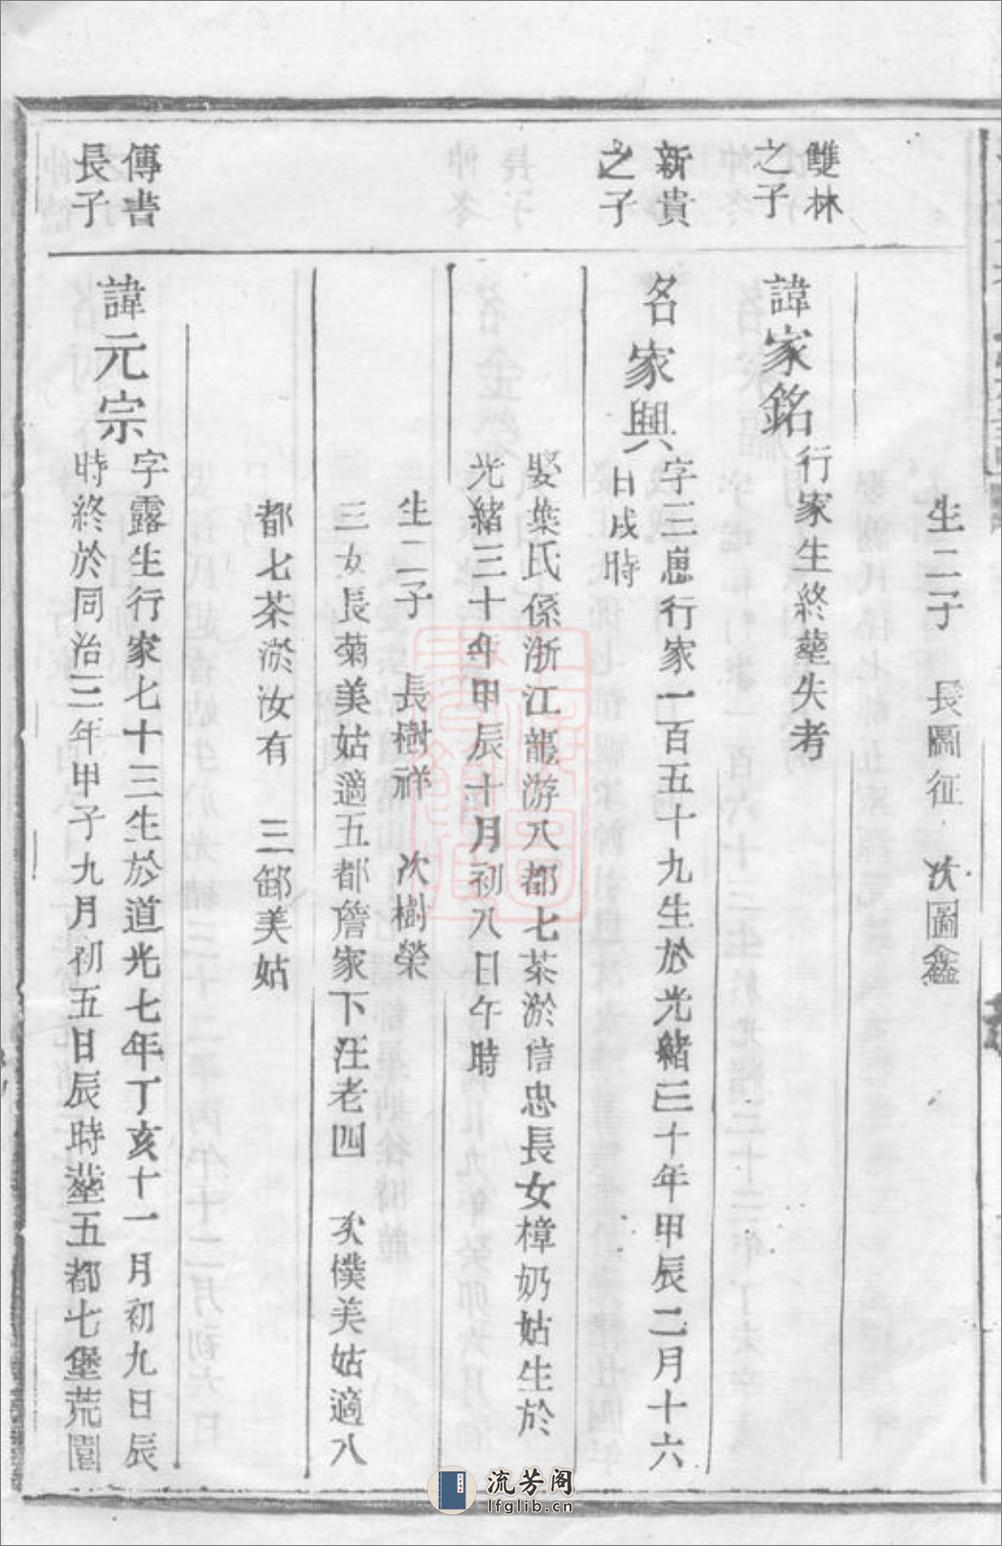 生二子　長圖征　次圖鑫
雙林
之子
諱家銘
行家生終塟失考
新貴
之子
名家興
字三崽行家一百五十九生於光緒三十年甲辰二月十六
日戌時
娶葉氏係浙江龍游八都七茶淤信忠長女樟奶姑生於
光緒三十年甲辰十月初八日午時
生二子　長樹祥　次樹榮
三女長菊美姑適五都詹家下汪老四　次僕美姑適八
都七茶淤汝有　三郤美姑
傳書
長子
諱元宗
字露生行家七十三生於道光七年丁亥十一月初九日辰
時終於同治三年甲子九月初五日辰時塟五都七堡荒園
流芳阁
lfglib.cn